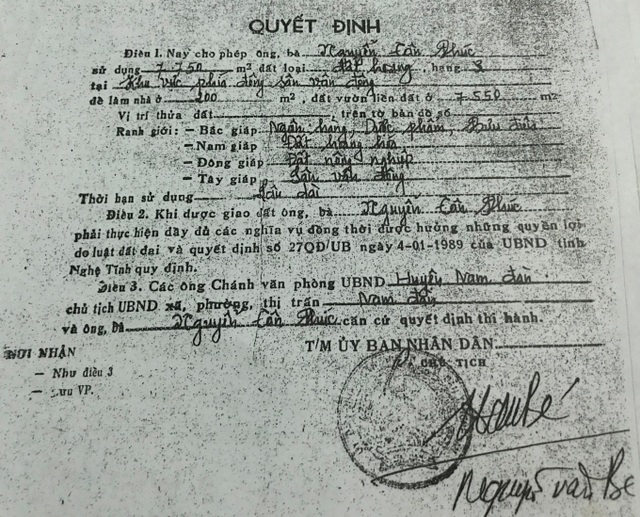 QUYẾT ĐỊNH
Điều 1. Nay cho phép ông, bà Nguyễn Cần Phúc
sử dụng 7.750 m² đất loại đất hoang, hạng 3
tại Khu vực phía đông sân vận động
để làm nhà ở 200 m², đất vườn liền đất ở 7550 m²
Vị trí thửa đất trên tờ bản đồ số
Ranh giới: – Bắc giáp Ngân hàng, Dược phẩm, Bưu điện
– Nam giáp Đất hoang hóa
– Đông giáp Đất nông nghiệp
– Tây giáp Sân vận động
Thời hạn sử dụng Lâu dài
Điều 2. Khi được giao đất ông, bà Nguyễn Cần Phúc
phải thực hiện đầy đủ các nghĩa vụ đồng thời được hưởng những quyền lợi
do luật đất đai và quyết định số 27QĐ/UB ngày 4-01-1989 của UBND tỉnh
Nghệ Tĩnh quy định.
Điều 3. Các ông Chánh văn phòng UBND Huyện Nam đàn
chủ tịch UBND xã, phường, thị trấn Nam đàn
và ông, bà Nguyễn Cần Phúc căn cứ quyết định thi hành.
NƠI NHẬN
– Như điều 3
– Lưu VP.
T/M ỦY BAN NHÂN DÂN
CHỦ TỊCH
Nguyễn Văn Bé